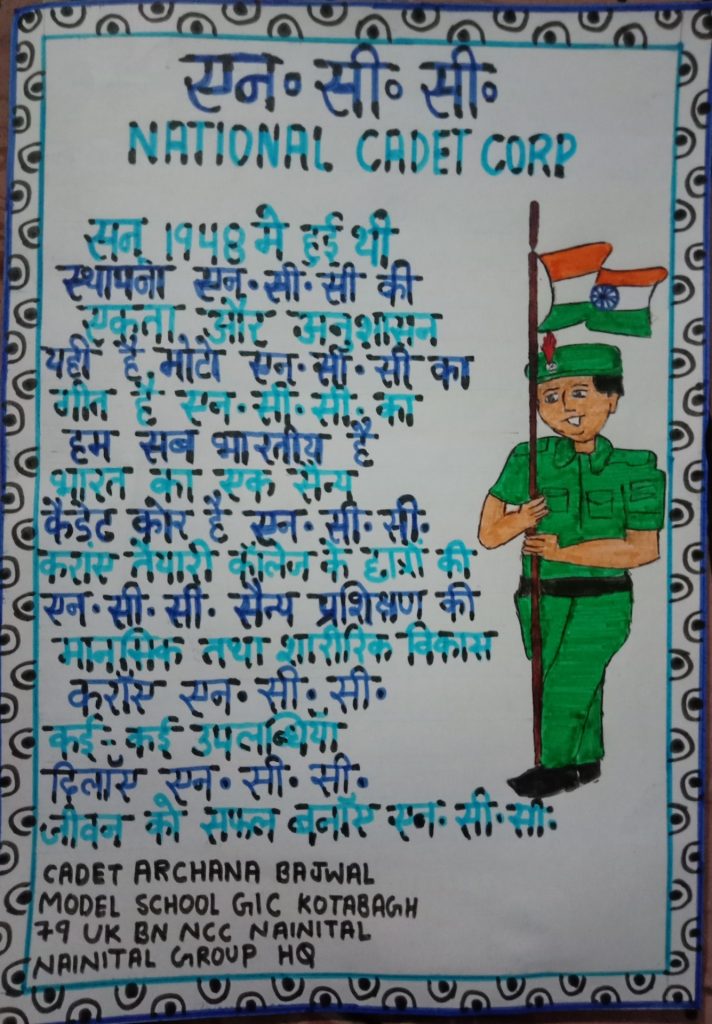 एन॰ सी॰ सी॰
NATIONAL CADET CORP
सन् 1948 मे हुई थी
स्थापना एन॰ सी॰ सी की
एकता और अनुशासन
यही है मोटो एन॰ सी॰ सी का
गीत है एन॰ सी॰ सी॰ का
हम सब भारतीय है
भारत का एक सैन्य
कैडेट कोर है एन॰ सी॰ सी॰
कराएं तैयारी कॉलेज के छात्रों की
एन॰ सी॰ सी॰ सैन्य प्रशिक्षण की
मानसिक तथा शारीरिक विकास
करॉए एन॰ सी॰ सी॰
कई-कई उपलब्धियॉ
दिलॉए एन॰ सी॰ सी॰
जीवन को सफल बनॉए एन॰ सी॰ सी॰
CADET ARCHANA BAJWAL
MODEL SCHOOL GIC KOTABAGH
79 UK BN NCC NAINITAL
NAINITAL GROUP HQ